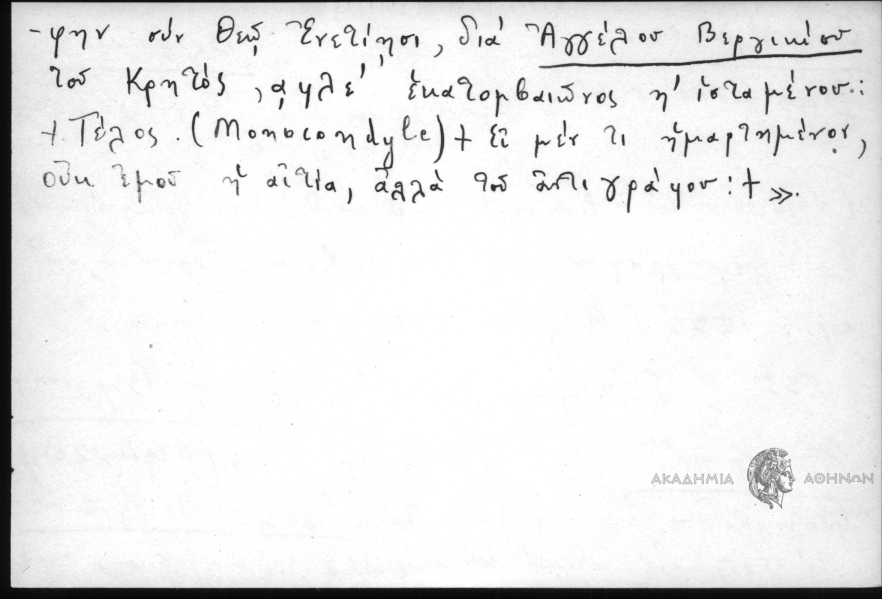 -φην σύν Θεῷ Ἐνετίησι, διά Ἀγγέλου Βεργικίου
τοῦ Κρητός, ͵αφλε΄ ἑκατομβαιῶνος η΄ ἱσταμένου:
+ Τέλος. (Monocondyle) + εἰ μέν τι ἡμαρτημένον,
οὐκ ἐμοῦ ἡ αἰτία, ἀλλὰ τοῦ ἀντιγράφου: + ».
ΑΚΑΔΗΜΙΑ ΑΘΗΝΩΝ